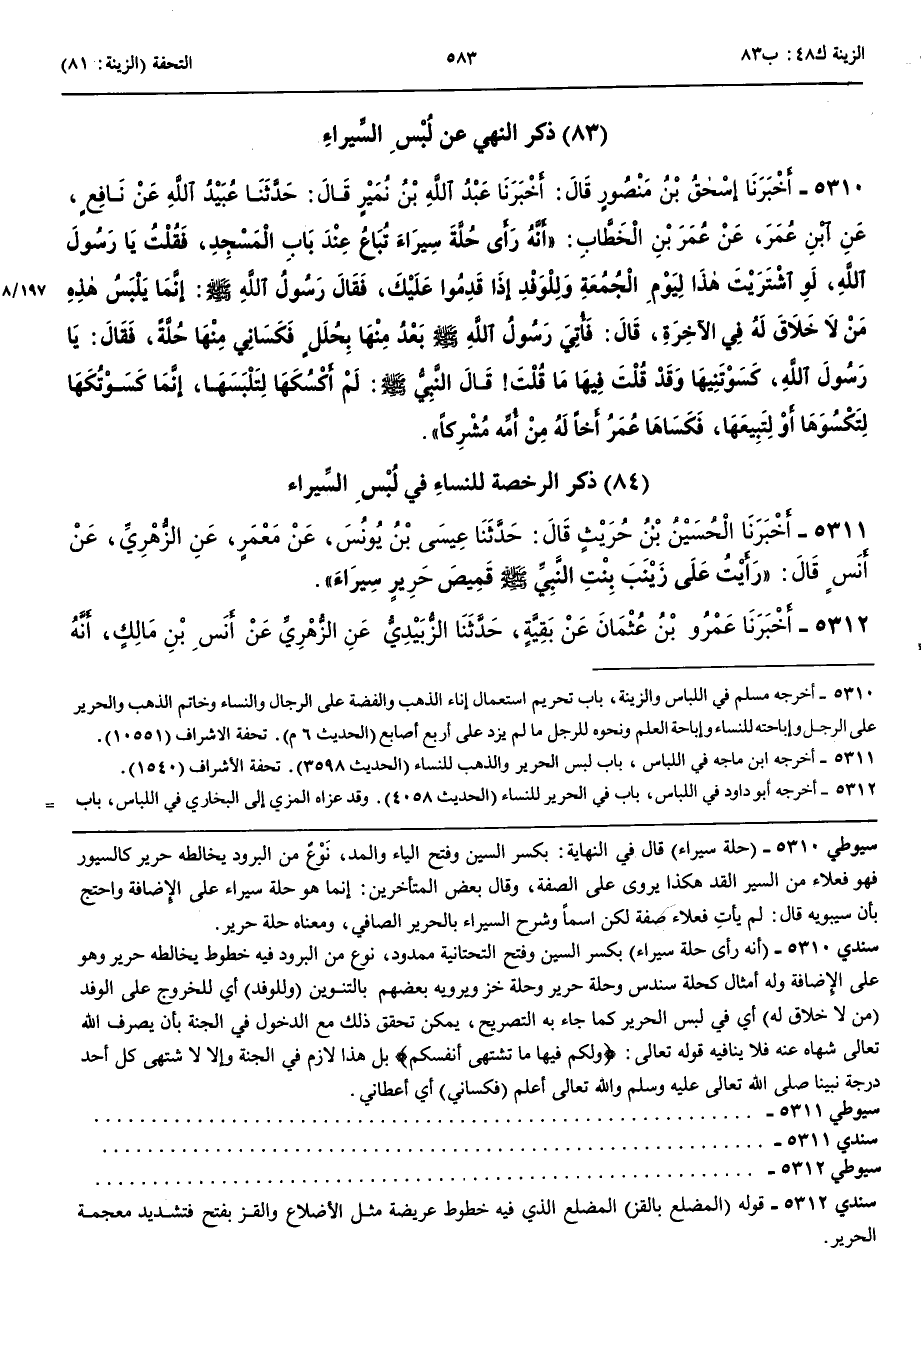 الزينة ك٤٨: ب٨٣ ٥٨٣ التحفة (الزينة: ٨١)
(٨٣) ذكر النهي عن لُبْسِ السِّيراءِ
٥٣١٠ ـ أَخْبَرَنَا إِسْحٰقُ بْنُ مَنْصُورٍ قَالَ: أَخْبَرَنَا عَبْدُ اللَّهِ بْنُ نُمَيْرٍ قَـالَ: حَدَّثَنَـا عُبَيْدُ اللَّهِ عَنْ نَـافِعٍ،
عَنِ ابْنِ عُمَرَ، عَنْ عُمَرَ بْنِ الْخَطَّابِ: «أَنَّهُ رَأَى حُلَّةَ سِيَرَاءَ تُبَاعُ عِنْدَ بَابِ الْمَسْجِدِ، فَقُلْتُ يَا رَسُولَ
اللَّهِ، لَوِ اشْتَرَيْتَ هٰذَا لِيَوْمِ الْجُمُعَةِ وَلِلْوَفْدِ إِذَا قَدِمُوا عَلَيْكَ، فَقَالَ رَسُولُ اللَّهِ ﷺ: إِنَّمَا يَلْبَسُ هٰذِهِ ٨/١٩٧
مَنْ لَا خَلَاقَ لَهُ فِي الآخِرَةِ، قَالَ: فَأُتِيَ رَسُولُ اللَّهِ ﷺ بَعْدُ مِنْهَا بِحُلَلٍ فَكَسَانِي مِنْهَا حُلَّةً، فَقَالَ: يَا
رَسُولَ اللَّهِ، كَسَوْتَنِيهَا وَقَدْ قُلْتَ فِيهَا مَا قُلْتَ! قَـالَ النَّبِيُّ ﷺ: لَمْ أَكْسُكَهَا لِتَلْبَسَهَـا، إِنَّمَا كَسَـوْتُكَهَا
لِتَكْسُوَهَا أَوْ لِتَبِيعَهَا، فَكَسَاهَا عُمَرُ أَخاً لَهُ مِنْ أُمِّه مُشْرِكاً».
(٨٤) ذكر الرخصة للنساءِ في لُبْسِ السِّيراء
٥٣١١ ـ أَخْبَرَنَا الْحُسَيْنُ بْنُ حُرَيْثٍ قَالَ: حَدَّثَنَا عِيسَى بْنُ يُونُسَ، عَنْ مَعْمَرٍ، عَنِ الزُّهْرِيِّ، عَنْ
أَنَسٍ قَالَ: «رَأَيْتُ عَلَى زَيْنَبَ بِنْتِ النَّبِيِّ ﷺ قَمِيصَ حَرِيرٍ سِيَرَاءَ».
٥٣١٢ ـ أَخْبَرَنَا عَمْرُو بْنُ عُثْمَانَ عَنْ بَقِيَّةٍ، حَدَّثَنَا الزُّبَيْدِيُّ عَنِ الزُّهْرِيِّ عَنْ أَنَسِ بْنِ مَالِكٍ، أَنَّهُ
٥٣١٠ ـ أخرجه مسلم في اللباس والزينة، باب تحريم استعمال إناء الذهب والفضة على الرجال والنساء وخاتم الذهب والحرير
على الرجـل وإباحته للنساء وإباحة العلم ونحوه للرجل ما لم يزد على أربع أصابع (الحديث ٦ م). تحفة الاشراف (١٠٥٥١).
٥٣١١ ـ أخرجه ابن ماجه في اللباس، باب لبس الحرير والذهب للنساء (الحديث ٣٥٩٨). تحفة الأشراف (١٥٤٠).
٥٣١٢ ـ أخرجه أبو داود في اللباس، باب في الحرير للنساء (الحديث ٤٠٥٨). وقد عزاه المزي إلى البخاري في اللباس، باب =
سيوطي ٥٣١٠ ـ (حلة سيراء) قال في النهاية: بكسر السين وفتح الياء والمد، نَوْعٌ من البرود يخالطه حرير كالسيور
فهو فعلاء من السير القد هكذا يروى على الصفة، وقال بعض المتأخرين: إنما هو حلة سيراء على الإِضافة واحتج
بأن سيبويه قال: لم يأتِ فعلاء صفة لكن اسماً وشرح السيراء بالحرير الصافي، ومعناه حلة حرير.
سندي ٥٣١٠ ـ (أنه رأى حلة سيراء) بكسر السين وفتح التحتانية ممدود، نوع من البرود فيه خطوط يخالطه حرير وهو
على الإِضافة وله أمثال كحلة سندس وحلة حرير وحلة خز ويرويه بعضهم بالتنوين (وللوفد) أي للخروج على الوفد
(من لا خلاق له) أي في لبس الحرير كما جاء به التصريح، يمكن تحقق ذلك مع الدخول في الجنة بأن يصرف الله
تعالى شهاه عنه فلا ينافيه قوله تعالى: ﴿ولكم فيها ما تشتهى أنفسكم﴾ بل هذا لازم في الجنة وإلا لا شتهى كل أحد
درجة نبينا صلى الله تعالى عليه وسلم والله تعالى أعلم (فكساني) أي أعطاني.
سيوطي ٥٣١١ ـ . . . . . . . . . . . . . . . . . . . .
سندي ٥٣١١ ـ . . . . . . . . . . . . . . . . . . . .
سيوطي ٥٣١٢ ـ . . . . . . . . . . . . . . . . . . . .
سندي ٥٣١٢ ـ قوله (المضلع بالقز) المضلع الذي فيه خطوط عريضة مثـل الأضلاع والقـز بفتح فتشديد معجمـة
الحرير.